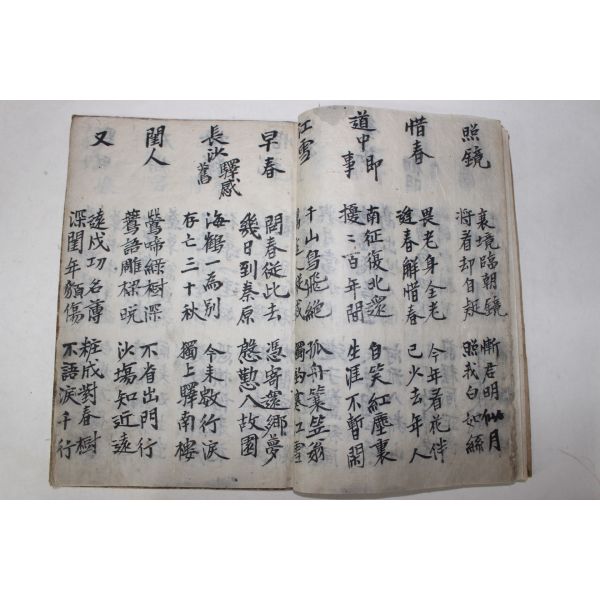 照鏡
臨朝鏡
將看却自疑
慚君明似月
照我白如絲
惜春
畏老身全老
逢春解惜春
今年看花伴
已少去年人
道中即事
南征復北還
擾〻百年間
自笑紅塵裏
生涯不暫閑
江雪
千山鳥飛絶
孤舟簑笠翁
獨釣寒江雪
早春
問春從此去
幾日到秦原
憑寄還鄉夢
慇懃入故園
長沙驛感舊
海鶴一為別
存亡三十秋
今來數行淚
獨上驛南樓
閨人
鶯啼綠樹深
鶯語雕樑晚
不省出門行
沙場知近遠
又
遠戍功名薄
深閨年貌傷
粧成對春樹
不語淚千行